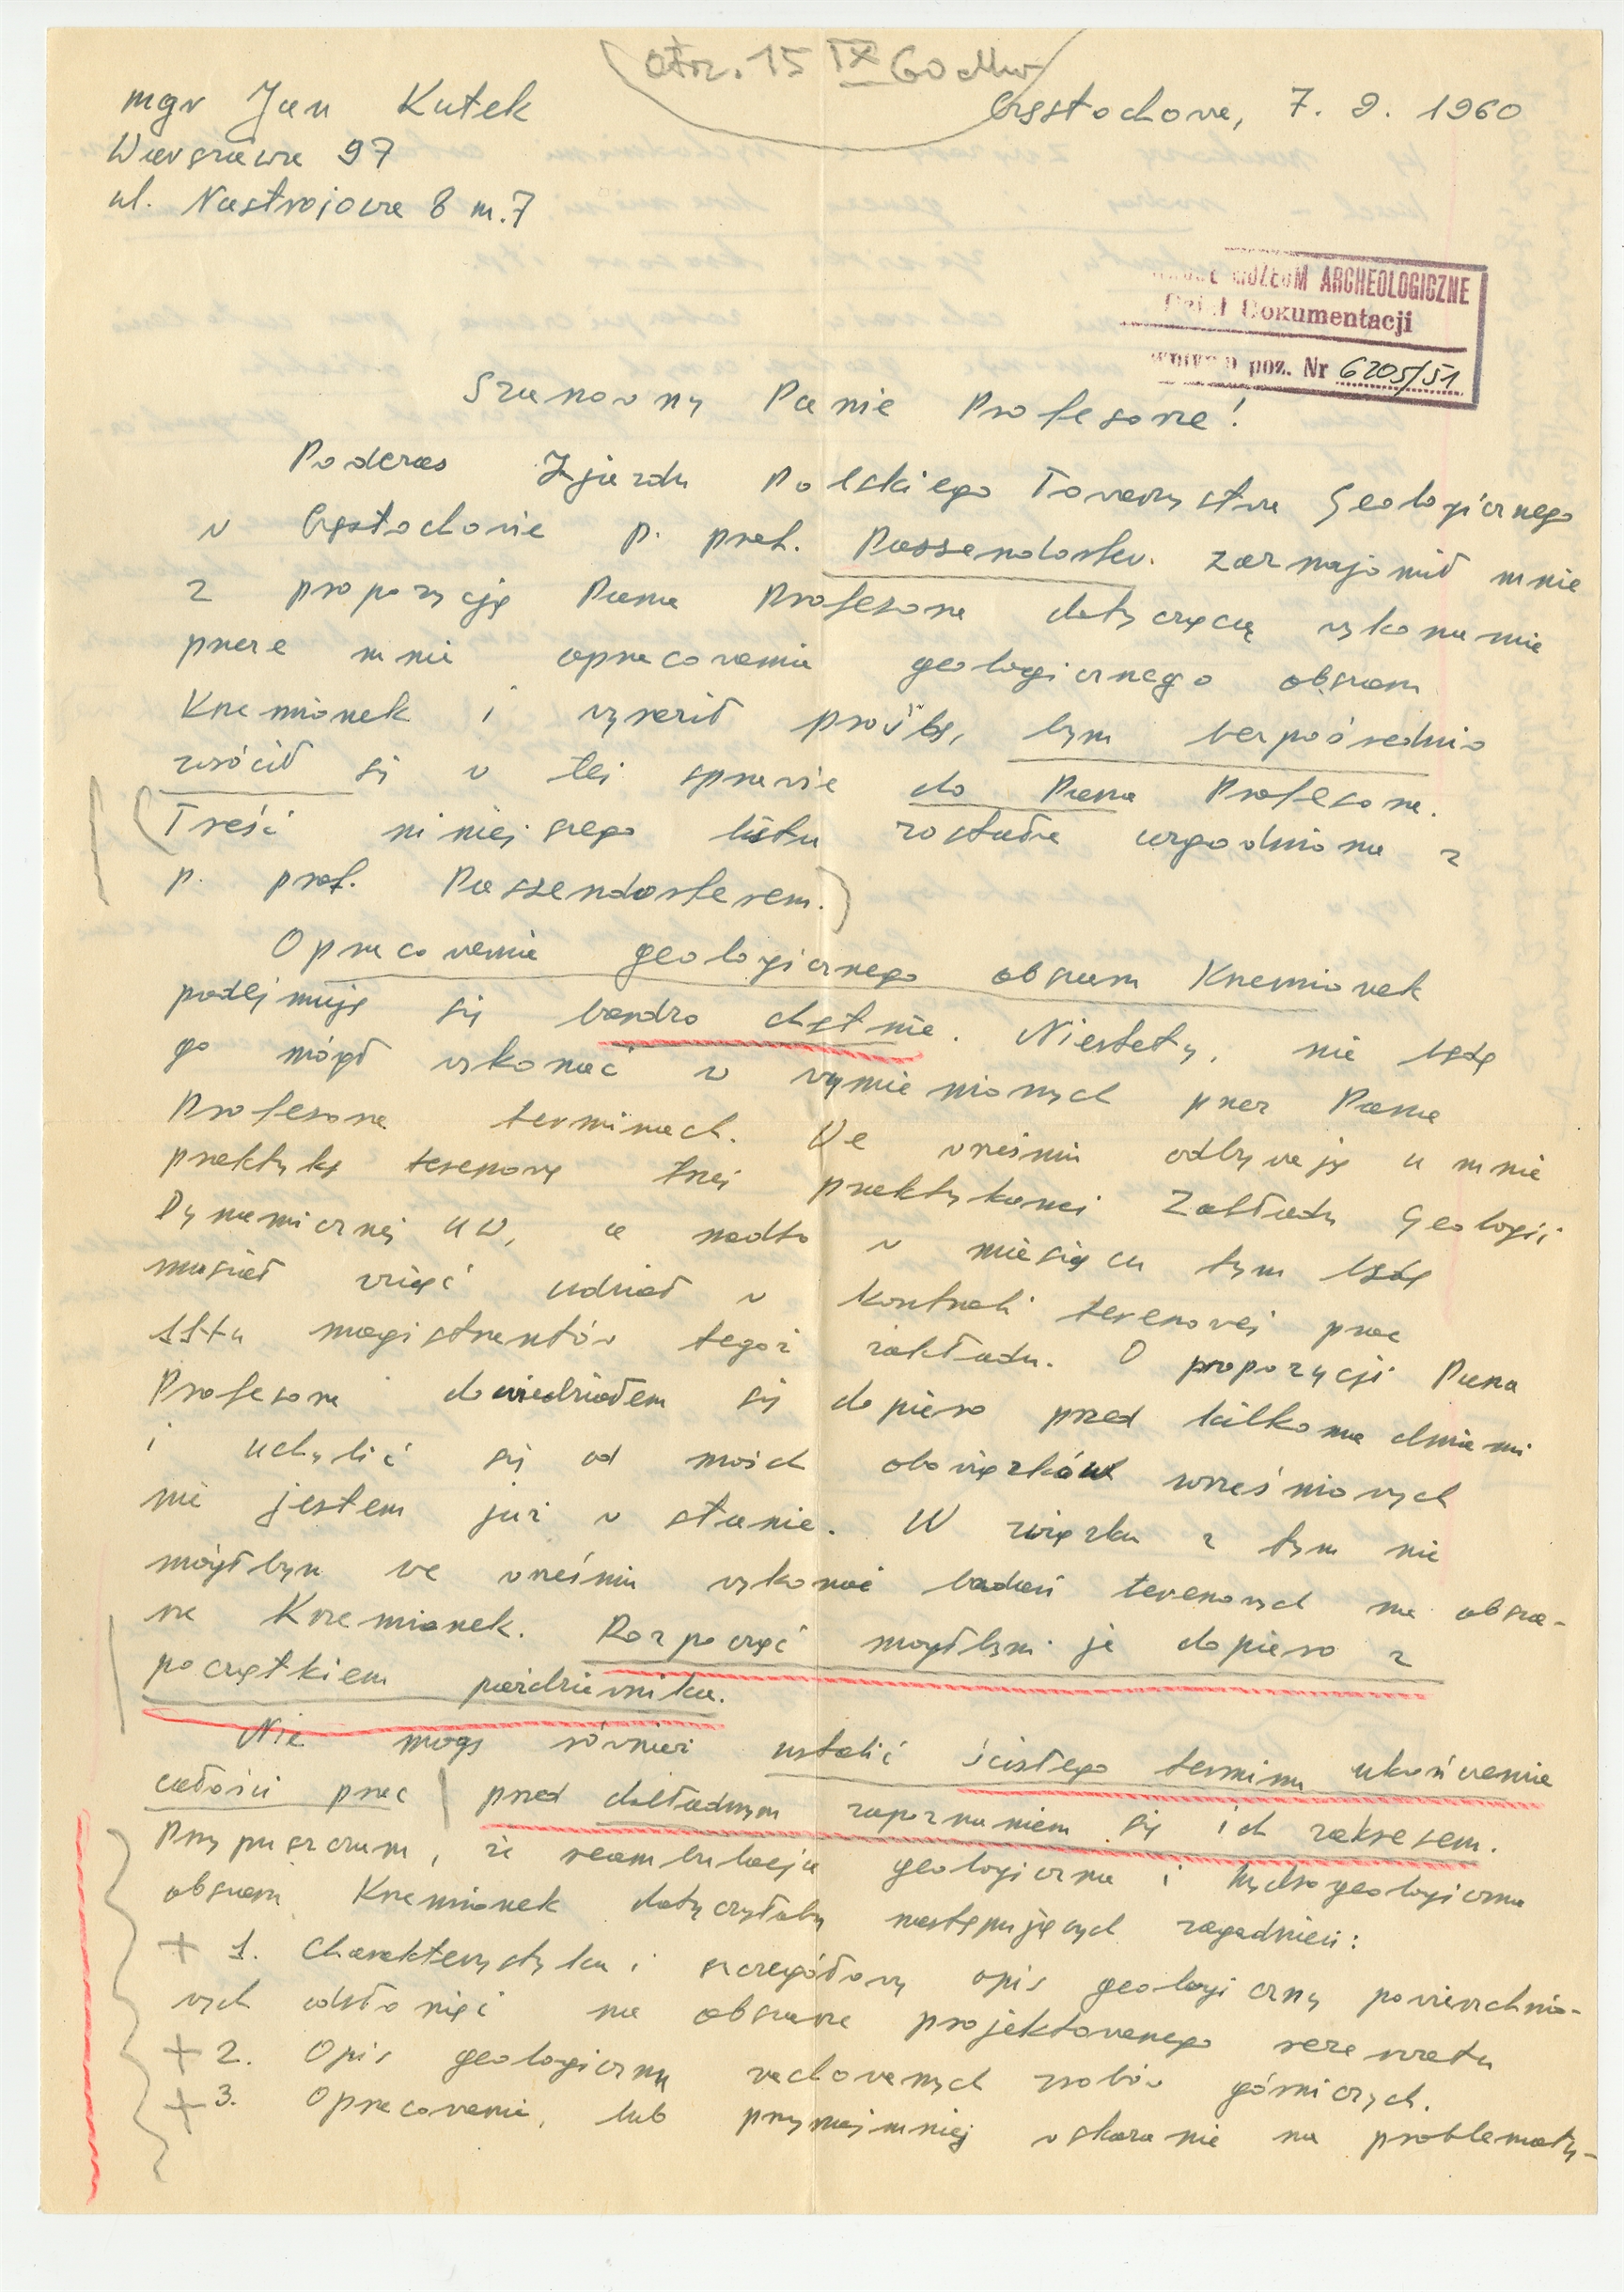 otrz. 15 IX 60
mgr Jan Kutek
Częstochowa, 7. 9. 1960
Warszawa 97
ul. Nastrojowa 8 m. 7
MUZEUM ARCHEOLOGICZNE
Dział Dokumentacji
poz. Nr 6205/51
Szanowny Panie Profesorze!
Podczas Zjazdu Polskiego Towarzystwa Geologicznego
w Częstochowie p. prof. Passendorfer zaznajomił mnie
z propozycją Pana Profesora dotyczącą wykonania
przeze mnie opracowania geologicznego obszaru
Krzemionek i wyraził prośbę, bym bezpośrednio
zwrócił się w tej sprawie do Pana Profesora.
Treść niniejszego listu została uzgodniona z
p. prof. Passendorferem.
Opracowania geologicznego obszaru Krzemionek
podejmuję się bardzo chętnie. Niestety, nie będę
go mógł wykonać w wymienionych przez Pana
Profesora terminach. We wrześniu odbywają u mnie
praktykę terenową trzej praktykanci Zakładu Geologii
Dynamicznej UW, a nadto w miesiącu tym będę
musiał wziąć udział w kontroli terenowej prac
11-tu magistrantów tegoż zakładu. O propozycji Pana
Profesora dowiedziałem się dopiero przed kilkoma dniami
i uchylić się od moich obowiązków wrześniowych
nie jestem już w stanie. W związku z tym nie
mógłbym we wrześniu wykonać badań terenowych na obsza-
rze Krzemionek. Rozpocząć mógłbym je dopiero z
początkiem października.
Nie mogę również ustalić ścisłego terminu ukończenia
całości prac przed dokładnym zapoznaniem się z ich zakresem.
Przypuszczam, że reambulacja geologiczna i hydrogeologiczna
obszaru Krzemionek dotyczyłaby następujących zagadnień:
+ 1. Charakterystyka i szczegółowy opis geologiczny powierzchnio-
wych odsłonięć na obszarze projektowanego rezerwatu
+ 2. Opis geologiczny zachowanych robów górniczych.
+ 3. Opracowanie, lub przynajmniej wskazanie na problematy-